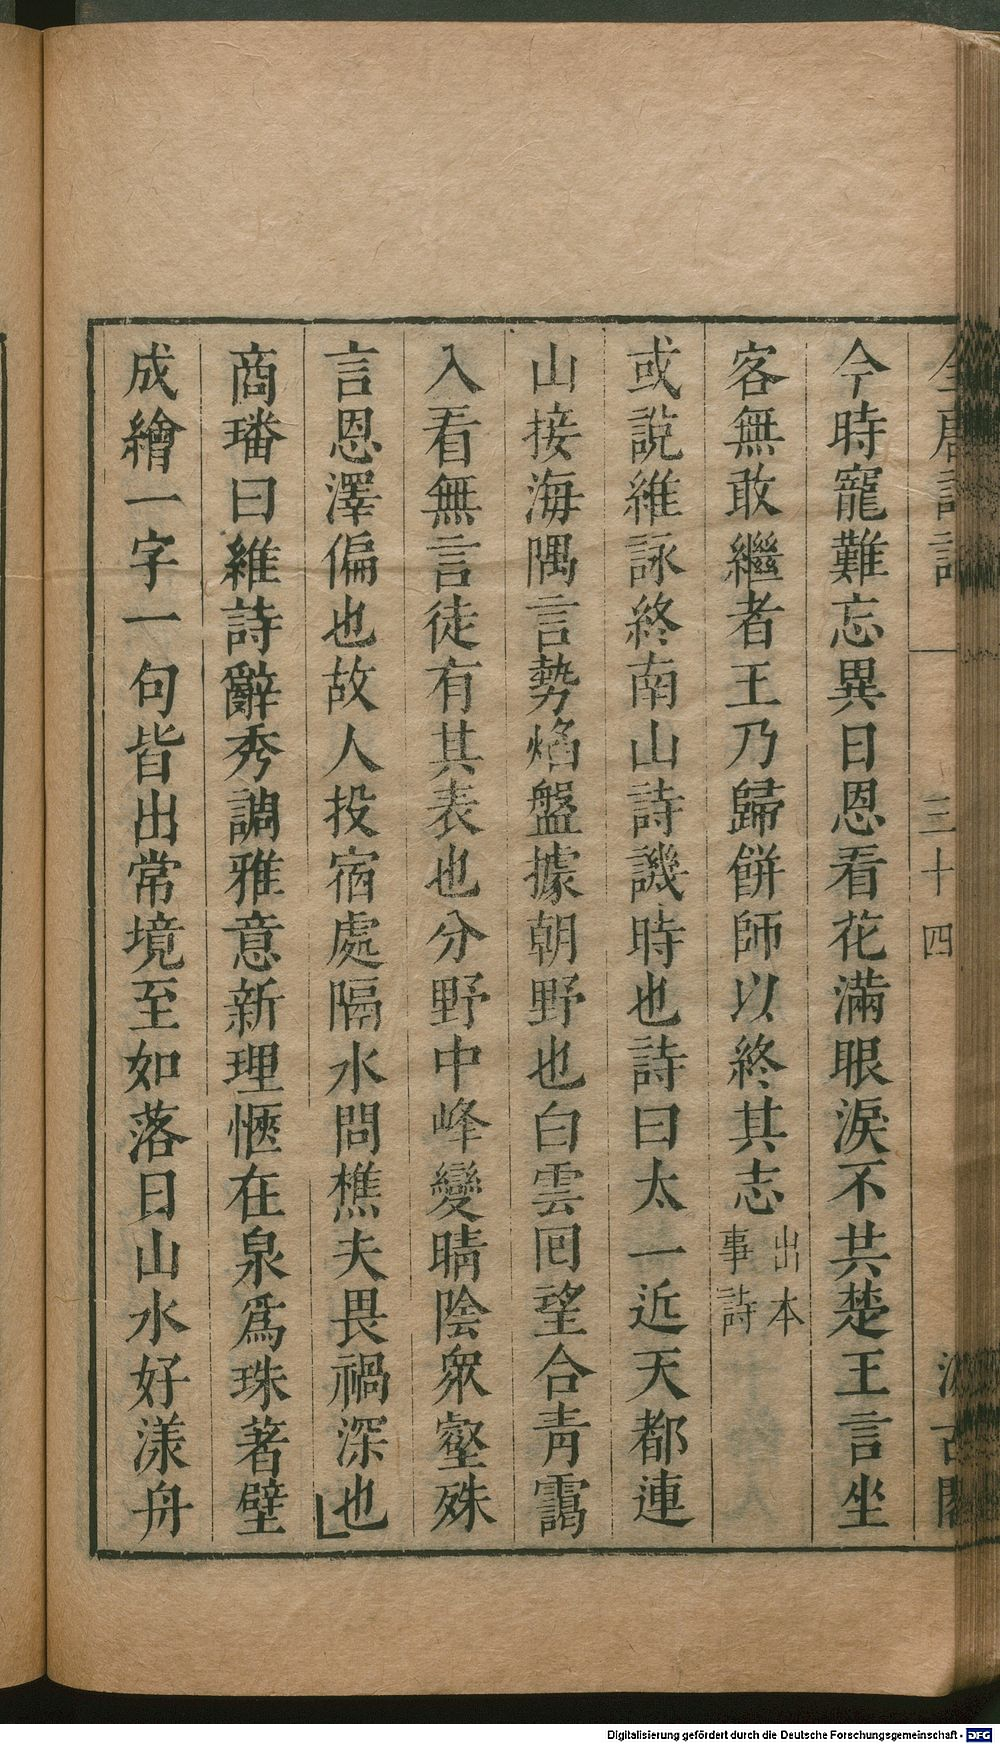 全唐詩話 三十四 汲古閣
今時寵難忘異日恩看花滿眼淚不共楚王言坐
客無敢繼者王乃歸餅師以終其志出本事詩
或說維詠終南山詩譏時也詩曰太一近天都連
山接海隅言勢焰盤據朝野也白雲囘望合青靄
入看無言徒有其表也分野中峰變晴陰衆壑殊
言恩澤偏也故人投宿處隔水問樵夫畏禍深也
商璠曰維詩辭秀調雅意新理愜在泉爲珠著壁
成繪一字一句皆出常境至如落日山水好漾舟
Digitalisierung gefördert durch die Deutsche Forschungsgemeinschaft - DFG